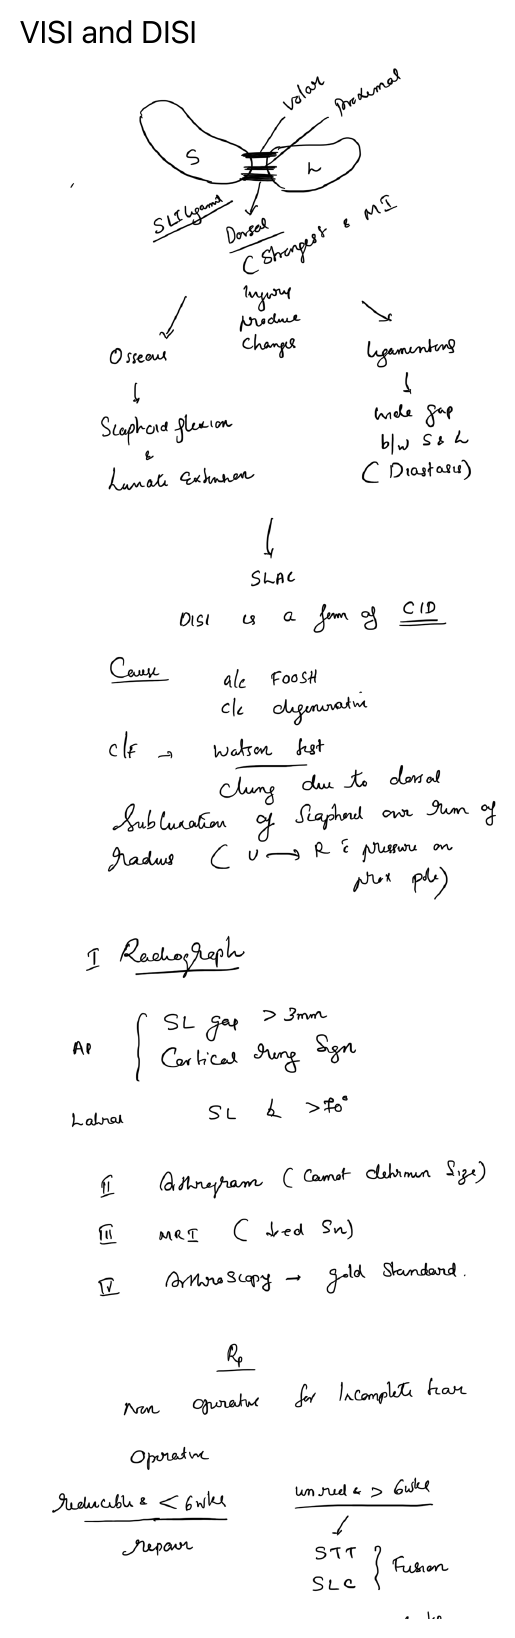 VISI and DISI
Volar
proximal
S
L
SLI ligament
Dorsal
( Strongest & MI
Injury
produce
changes
Osseous
ligamentous
Scaphoid flexion
&
Lunate Extension
wide gap
b/w S & L
( Diastasis)
SLAC
DISI is a form of CID
Cause
a/c FOOSH
c/c degenerative
c/f → Watson test
Clung due to dorsal
Subluxation of Scaphoid over rim of
radius ( U → R c̄ pressure on
prox pole)
I Radiograph
AP
SL gap > 3mm
Cortical ring Sign
Lateral SL ∠ > 70°
II Arthrogram ( Cannot determin Size)
III MRI ( ↓ed Sn)
IV Arthroscopy → gold Standard.
Rx
Non operative for Incomplete tear
Operative
reducible & < 6wks
repair
unred & > 6wks
STT
SLC
Fusion